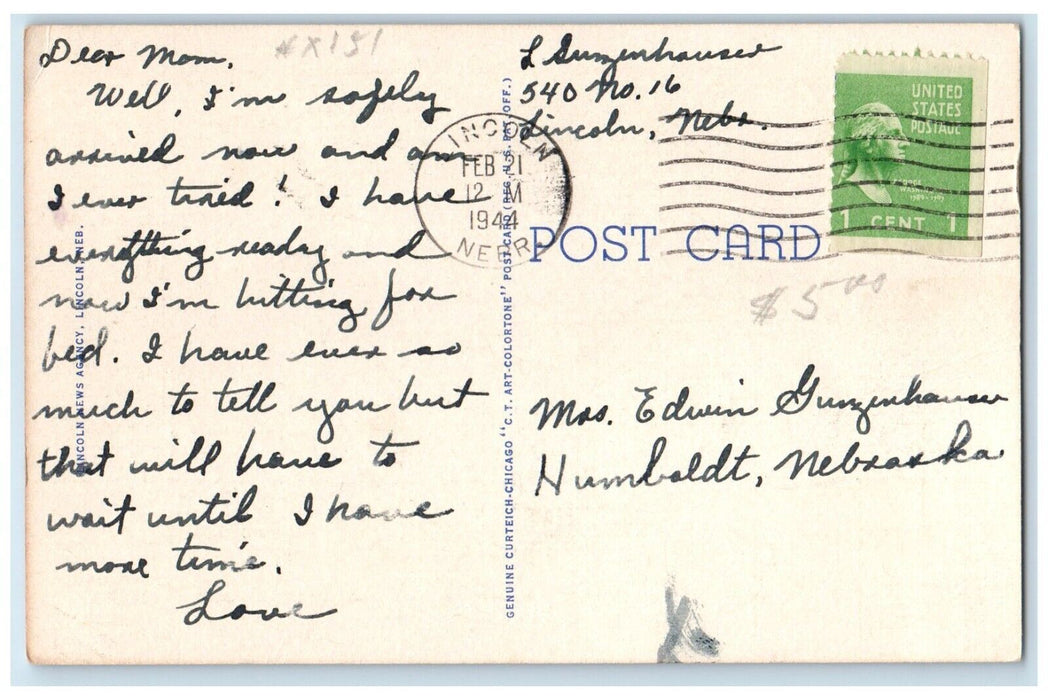 Dear Mom,
#X151
Well, I'm safely
arrived now and am
I ever tired! I have
everything ready and
now I'm hitting for
bed. I have ever so
much to tell you but
that will have to
wait until I have
more time.
Love
LINCOLN NEWS AGENCY, LINCOLN, NEB.
GENUINE CURTEICH-CHICAGO "C.T. ART-COLORTONE" POST CARD (REG. U.S. PAT. OFF.)
L Gunzenhauser
540 No. 16
Lincoln, Nebr.
LINCOLN
FEB 21
12 M
1944
NEBR.
UNITED
STATES
POSTAGE
GEORGE
WASHINGTON
1789-1797
1 CENT 1
POST CARD
$5.00
Mrs. Edwin Gunzenhauser
Humboldt, Nebraska